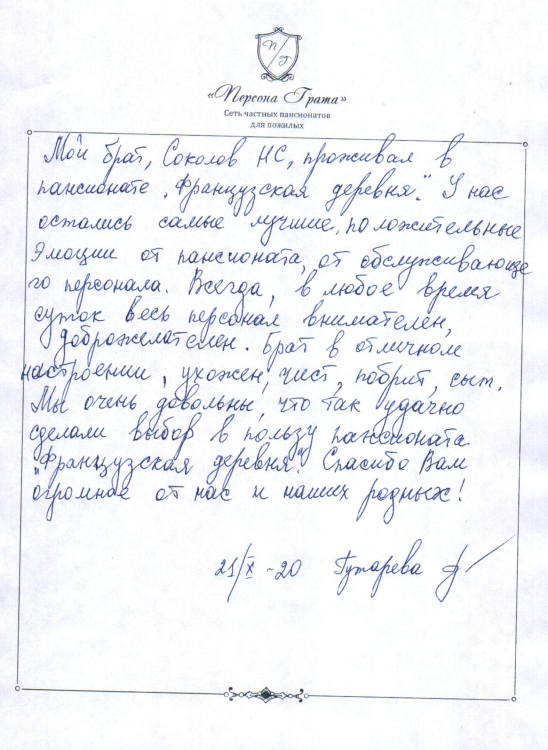 П Г
«Персона Грата»
Сеть частных пансионатов
для пожилых
Мой брат, Соколов НС, проживал в
пансионате „Французская деревня". У нас
остались самые лучшие, положительные
эмоции от пансионата, от обслуживающе
го персонала. Всегда, в любое время
суток весь персонал внимателен,
доброжелателен. Брат в отличном
настроении, ухожен, чист, побрит, сыт.
Мы очень довольны, что так удачно
сделали выбор в пользу пансионата
„Французская деревня". Спасибо Вам
огромное от нас и наших родных!
21/X -20 Гутарева